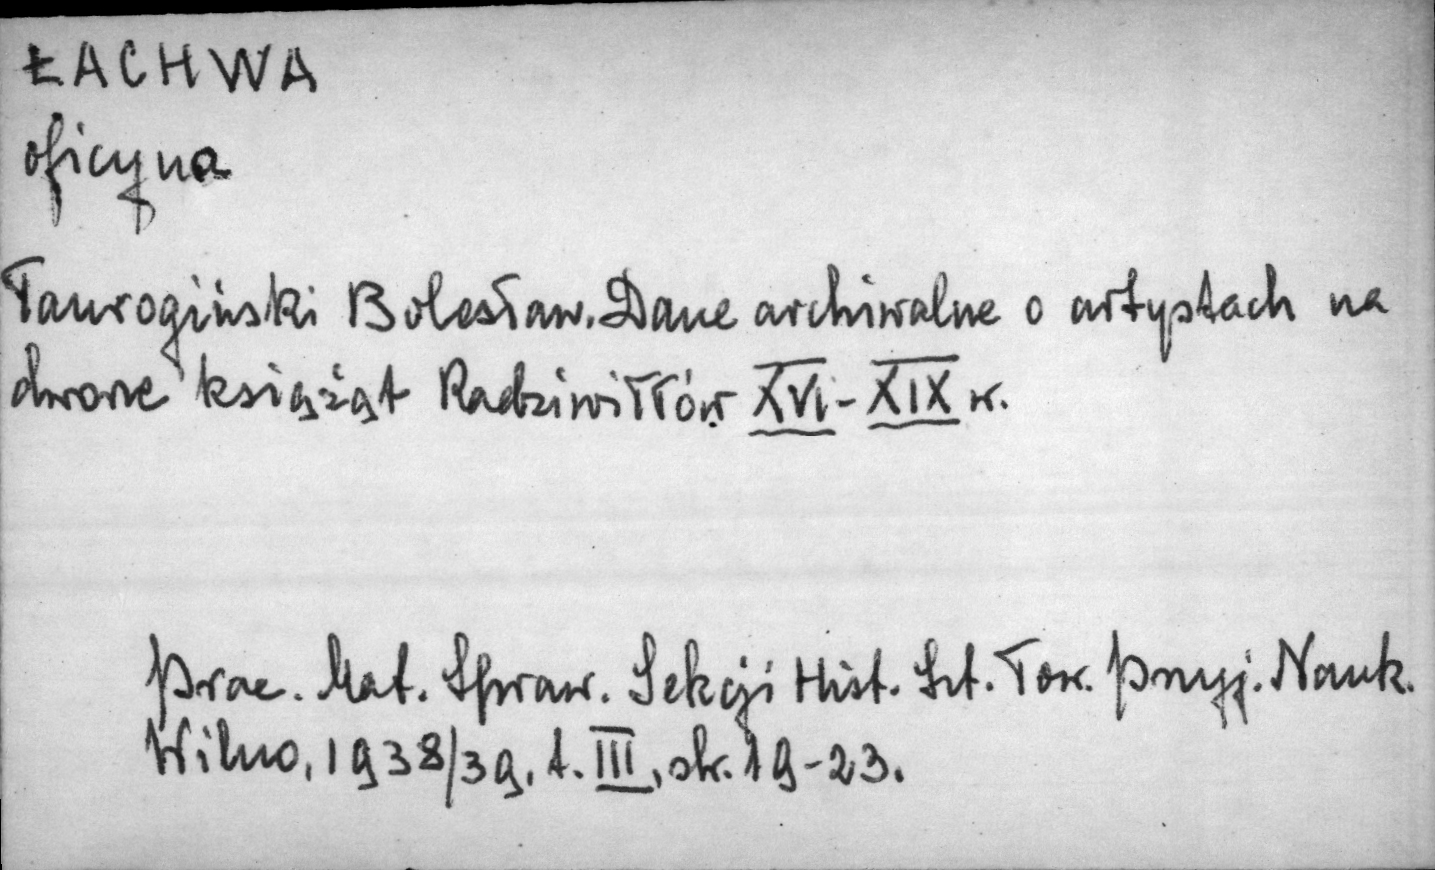 ŁACHWA
oficyna
Taurogiński Bolesław. Dane archiwalne o artystach na
dworze książąt Radziwiłłów XVI - XIX w.
Prac. Mat. Spraw. Sekcji Hist. Szt. Tow. Przyj. Nauk.
Wilno, 1938/39, t. III, str. 19-23.